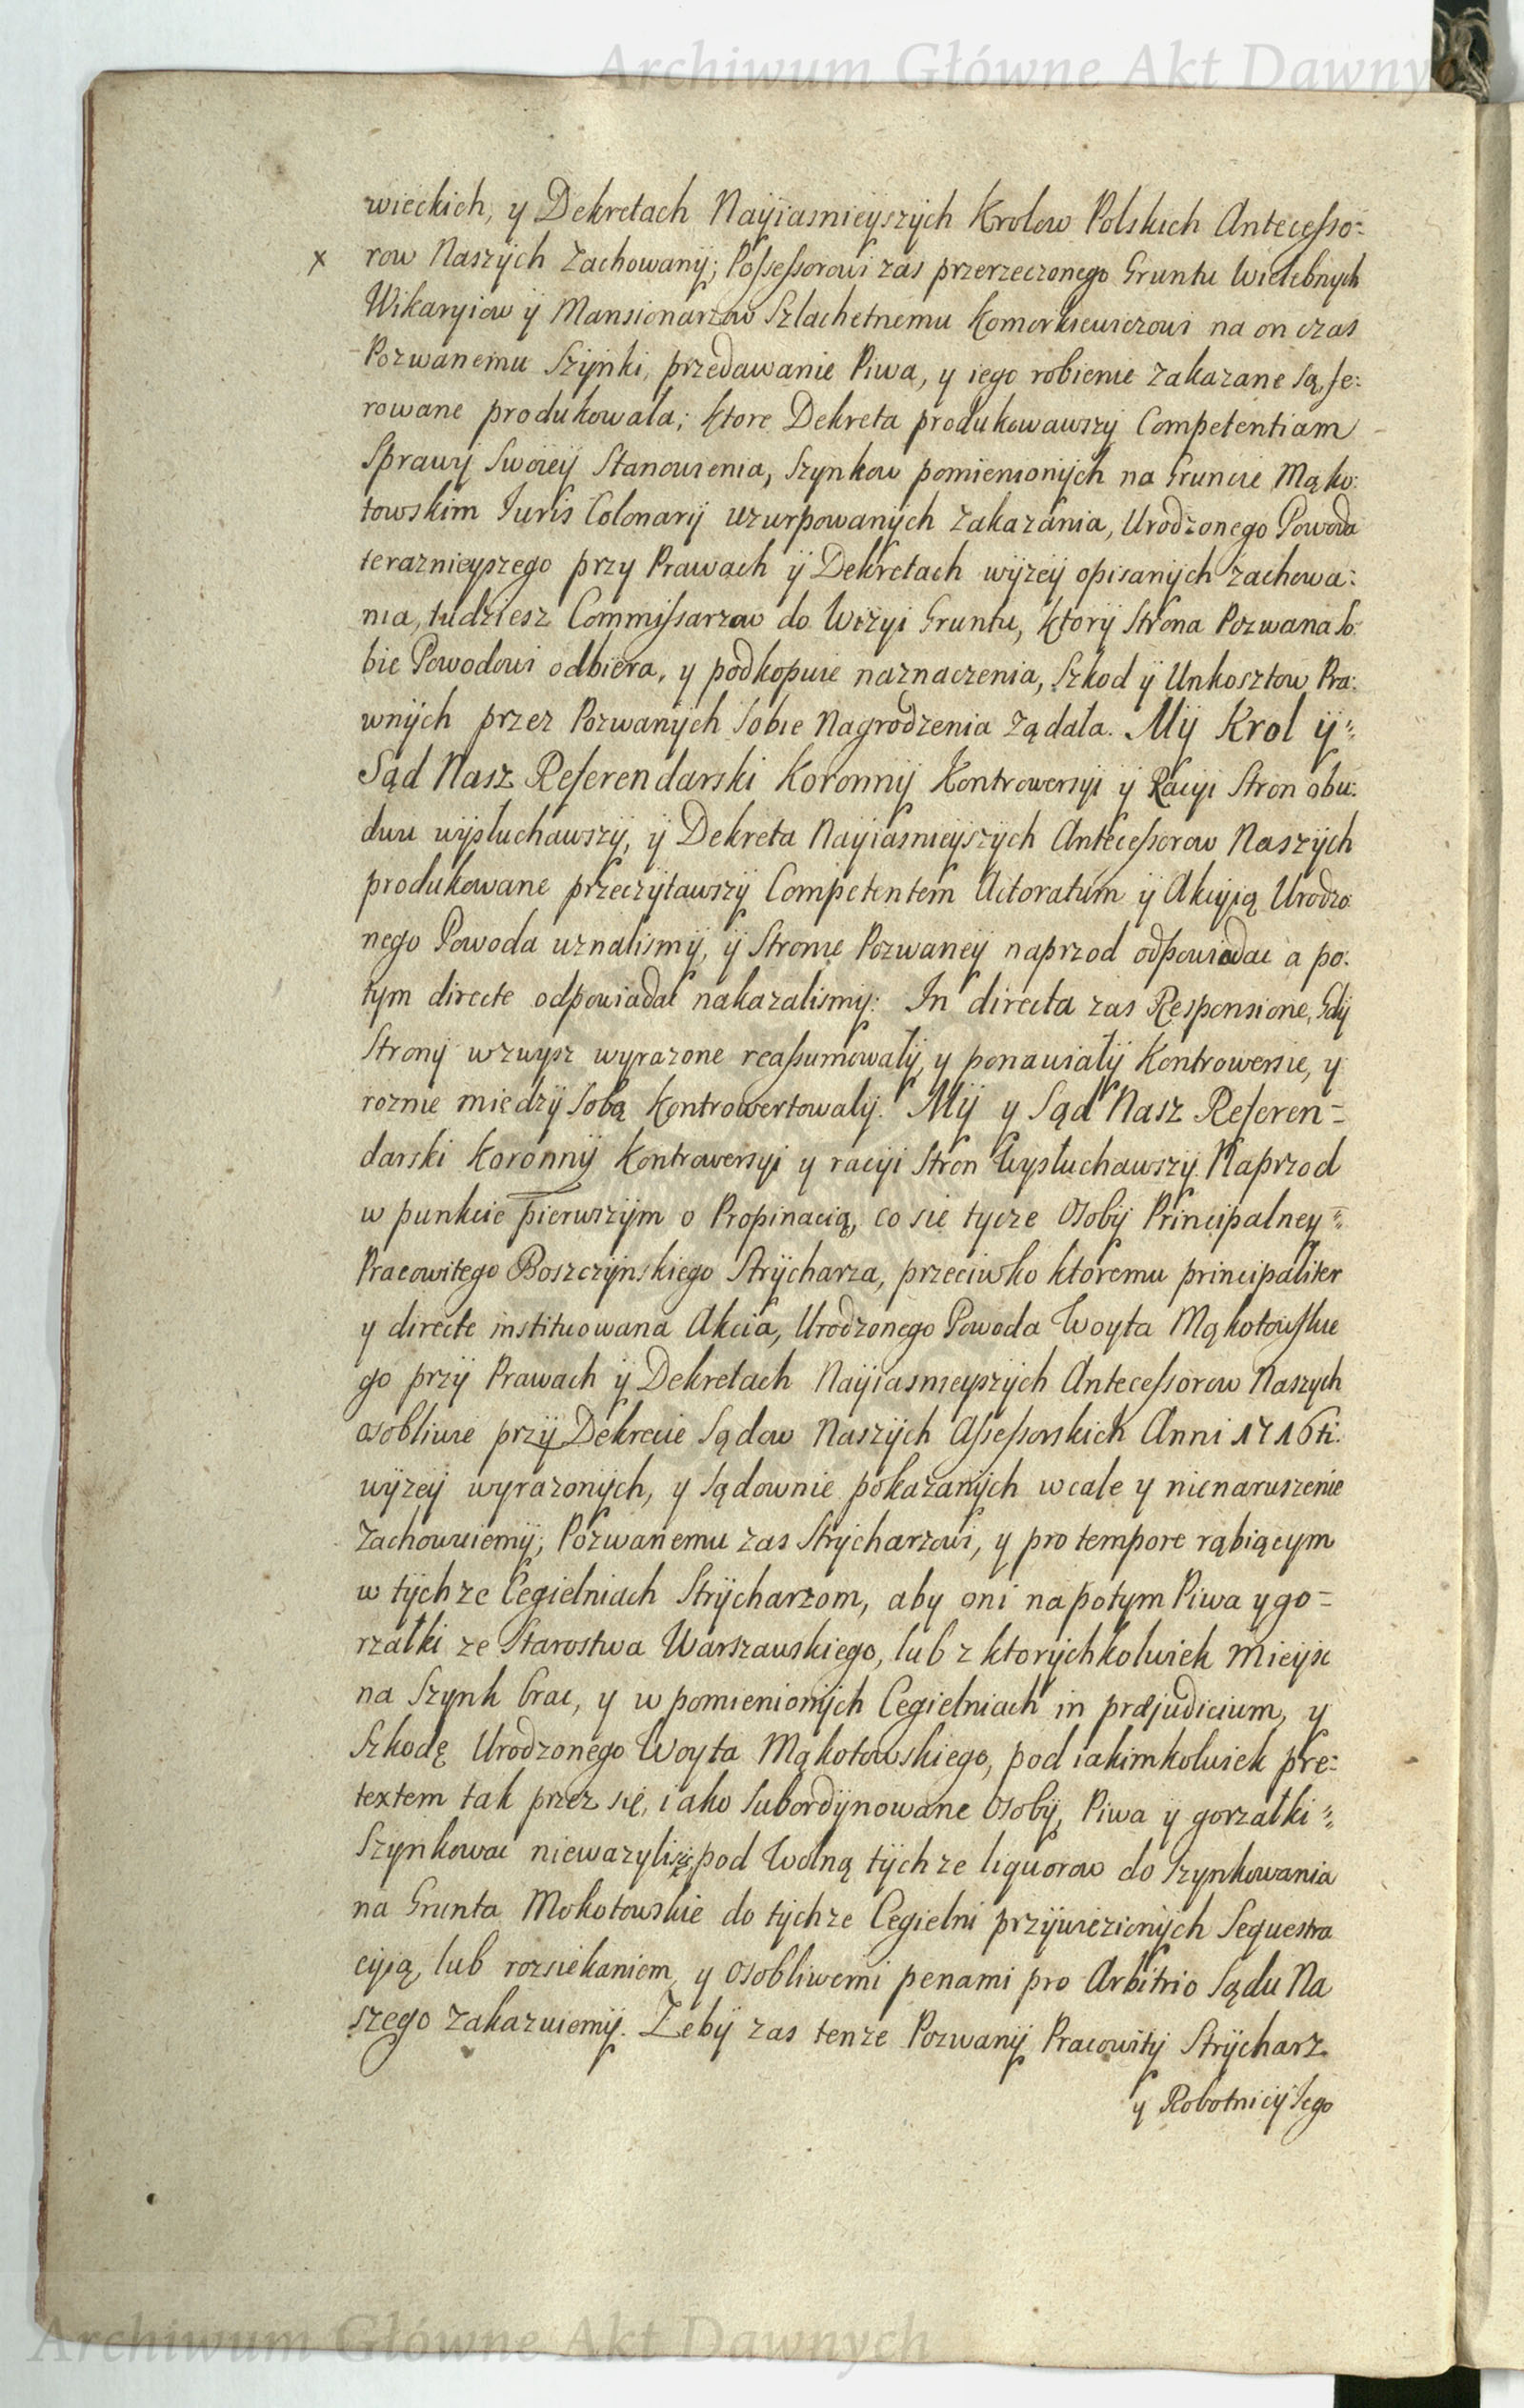 Archiwum Główne Akt Dawnych
wieckich, y Dekretach Nayiasnieyszych Krolow Polskich Antecesso-
x row Naszych Zachowany; Possessorowi zas przerzeczonego Gruntu Wielebnych
Wikaryiow y Mansionarzow Szlachetnemu Komorkiewiczowi na on czas
Pozwanemu Szynki, przedawanie Piwa, y iego robienie zakazane są, fe:
rowane produkowała; ktore Dekreta produkowawszy Competentiam
Sprawy Swoiey Stanowienia, Szynkow pomienionych na Gruncie Mąko:
towskim Iuris Colonarij uzurpowanych zakazania, Urodzonego Powoda
teraznieyszego przy Prawach y Dekretach wyzey opisanych zachowa:
nia, tudziesz Commissarzow do Wizyi Gruntu, ktory Strona Pozwana So:
bie Powodowi odbiera, y podkopuie naznaczenia, Szkod y Unkosztow Pra:
wnych przez Pozwanych Sobie Nagrodzenia Ządała. My Krol y
Sąd Nasz Referendarski Koronny Kontrowersyi y Racyi Stron obu:
dwu wysłuchawszy, y Dekreta Nayiasnieyszych Antecessorow Naszych
produkowane przeczytawszy Competentem Actoratum y Akcyią Urodzo
nego Powoda uznalismy, y Stronie Pozwaney naprzod odpowiadac a po:
tym directe odpowiadać nakazalismy: In directa zas Responsione, Gdy
Strony wzwysz wyrazone reassumowały, y ponawiały Kontrowersie, y
roznie miedzy Sobą Kontrowertowały. My y Sąd Nasz Referen=
darski Koronny Kontrowersyi y racyi Stron Wysłuchawszy. Naprzod
w punkcie pierwszym o Propinacią, co się tycze Osoby Principalney
Pracowitego Boszczynskiego Strycharza, przeciwko ktoremu principaliter
y directe instituowana Akcia, Urodzonego Powoda Woyta Mąkotowskie
go przy Prawach y Dekretach Nayiasnieyszych Antecessorow Naszych
osobliwie przy Dekrecie Sądow Naszych Assessorskich Anni 1716ti.
wyzey wyrazonych, y Sądownie pokazanych wcale y nienaruszenie
Zachowuiemy; Pozwanemu zas Strycharzowi, y pro tempore rąbiącym
w tychze Cegielniach Strycharzom, aby oni napotym Piwa y go=
rzałki ze Starostwa Warszawskiego, lub z ktorychkolwiek Mieysc
na Szynk brac, y w pomienionych Cegielniach in præjudicium, y
Szkodę Urodzonego Woyta Mąkotowskiego, pod iakimkolwiek pre:
textem tak przez się, iako Subordynowane Osoby, Piwa y gorzałki
Szynkowac niewazyli się pod Wolną tychze liquorow do Szynkowania
na Grunta Mokotowskie do tychze Cegielni przywiezionych Sequestra
cyią, lub rozsiekaniem, y osobliwemi penami pro Arbitrio Sądu Na
szego Zakazuiemy. Zeby zas tenze Pozwany Pracowity Strycharz
y Robotnicy Jego
Archiwum Główne Akt Dawnych